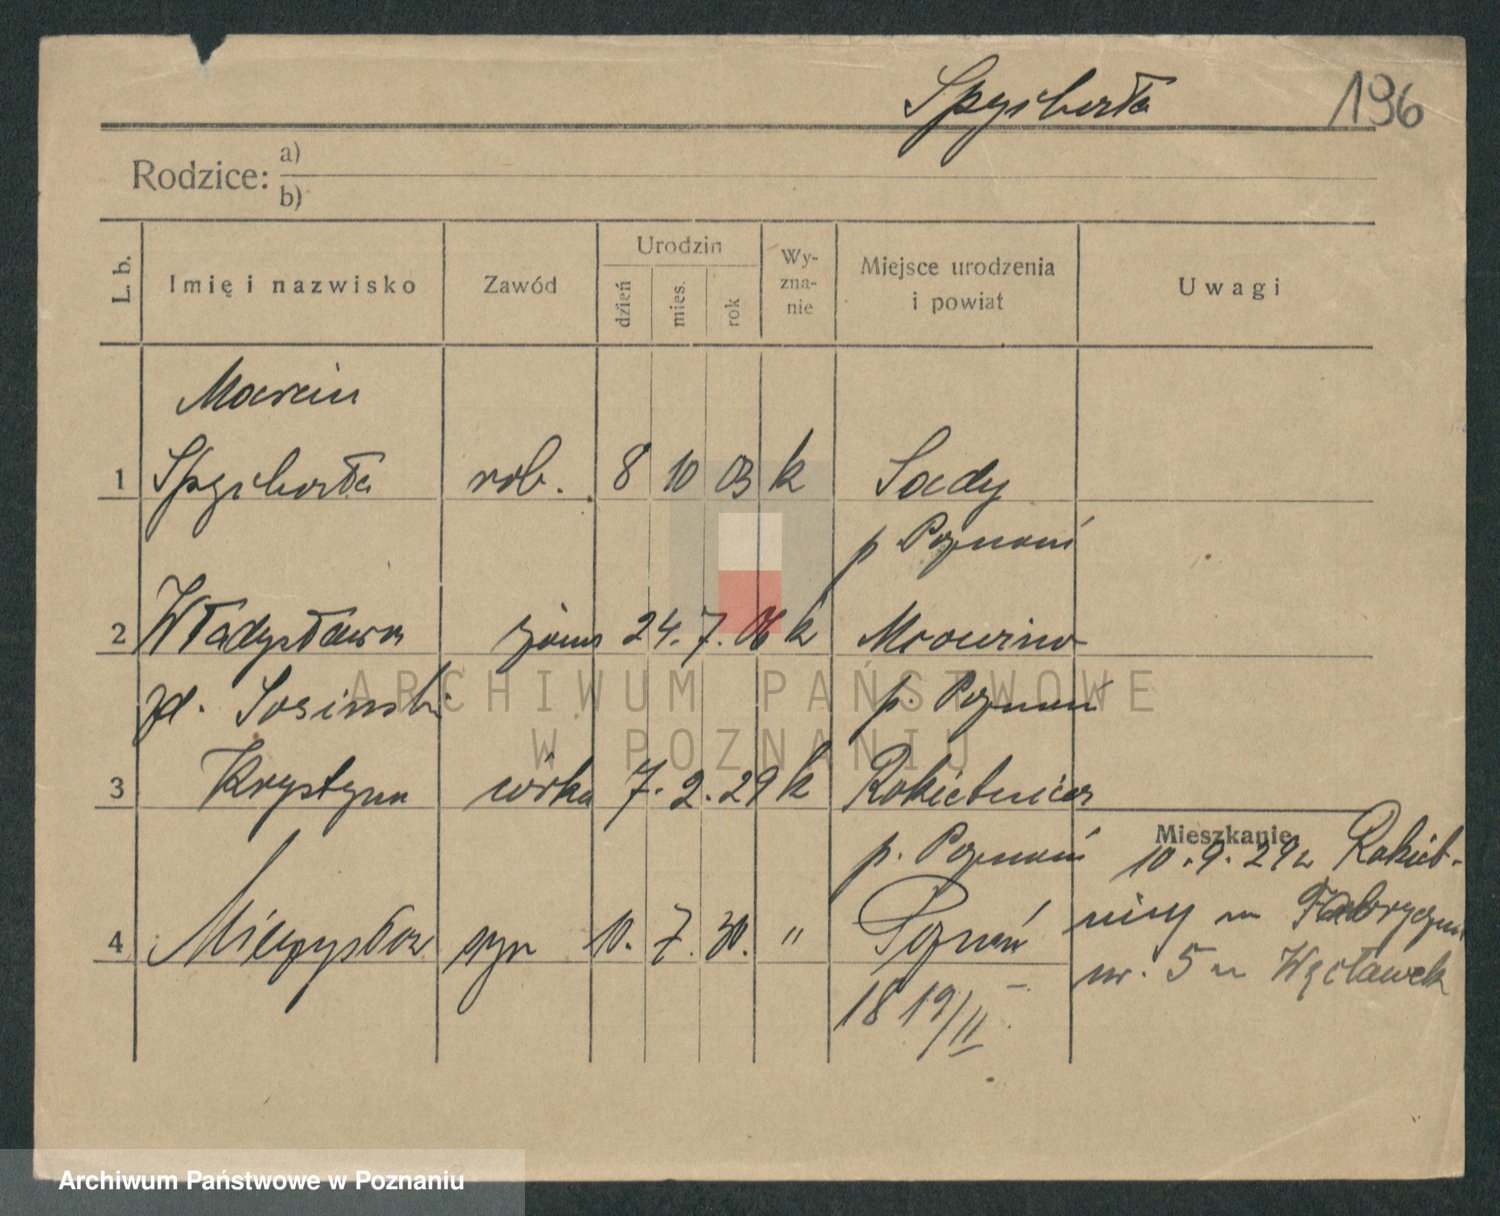 Spychała 196
Rodzice: a)
b)
L. b. Imię i nazwisko Zawód Urodzin dzień mies. rok Wy-zna-nie Miejsce urodzenia i powiat Uwagi
Marcin
1 Spychała rob. 8 10 03 k Sady
p Poznań
2 Władysława żona 24. 7. 06 k Mrowino
zd. Sosinski p. Poznań
3 Krystyna córka 7. 2. 29 k Rokietnica
Mieszkanie
p. Poznań 10. 9. 29 z Rokiet-
nicy Fabryczna
4 Mieczysław syn 10. 7. 30. " Poznań
nr. 5 u Węcławek
18 19/II
ARCHIWUM PAŃSTWOWE
W POZNANIU
Archiwum Państwowe w Poznaniu